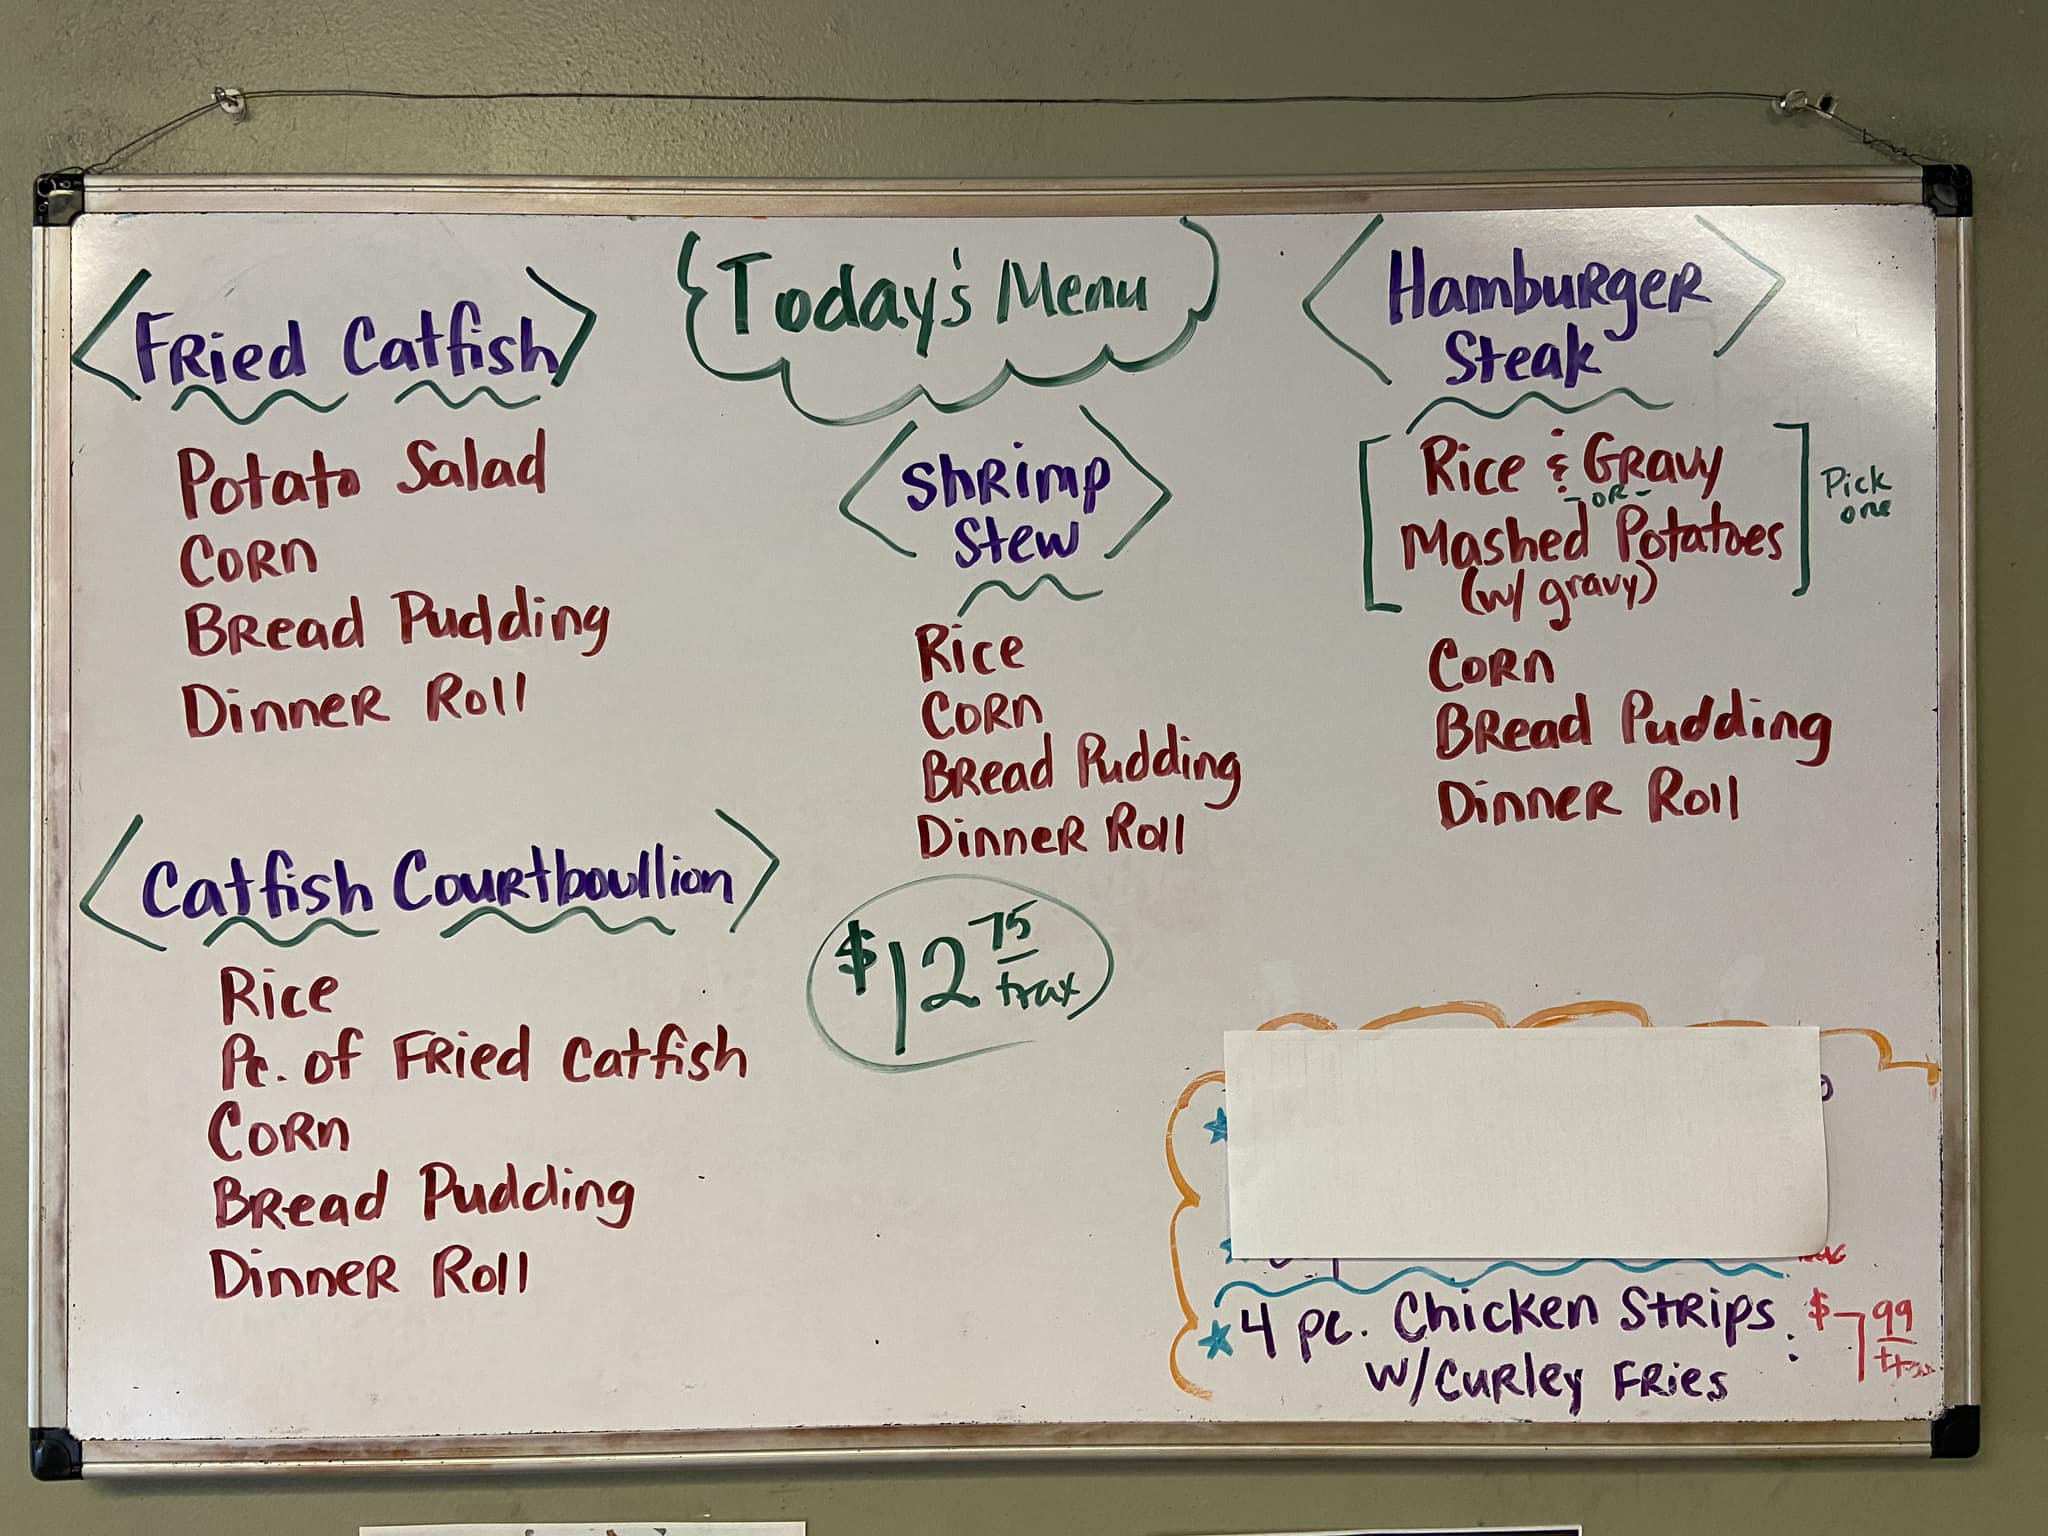 Today's Menu
Fried Catfish
Potato Salad
Corn
Bread Pudding
Dinner Roll
Catfish Courtboullion
Rice
Pc. of Fried Catfish
Corn
Bread Pudding
Dinner Roll
Shrimp
Stew
Rice
Corn
Bread Pudding
Dinner Roll
$12 75
+tax
Hamburger
Steak
Rice & Gravy
-OR-
Mashed Potatoes
(w/ gravy)
Pick
one
Corn
Bread Pudding
Dinner Roll
4 pc. Chicken Strips : $7 99
w/Curley Fries +tax